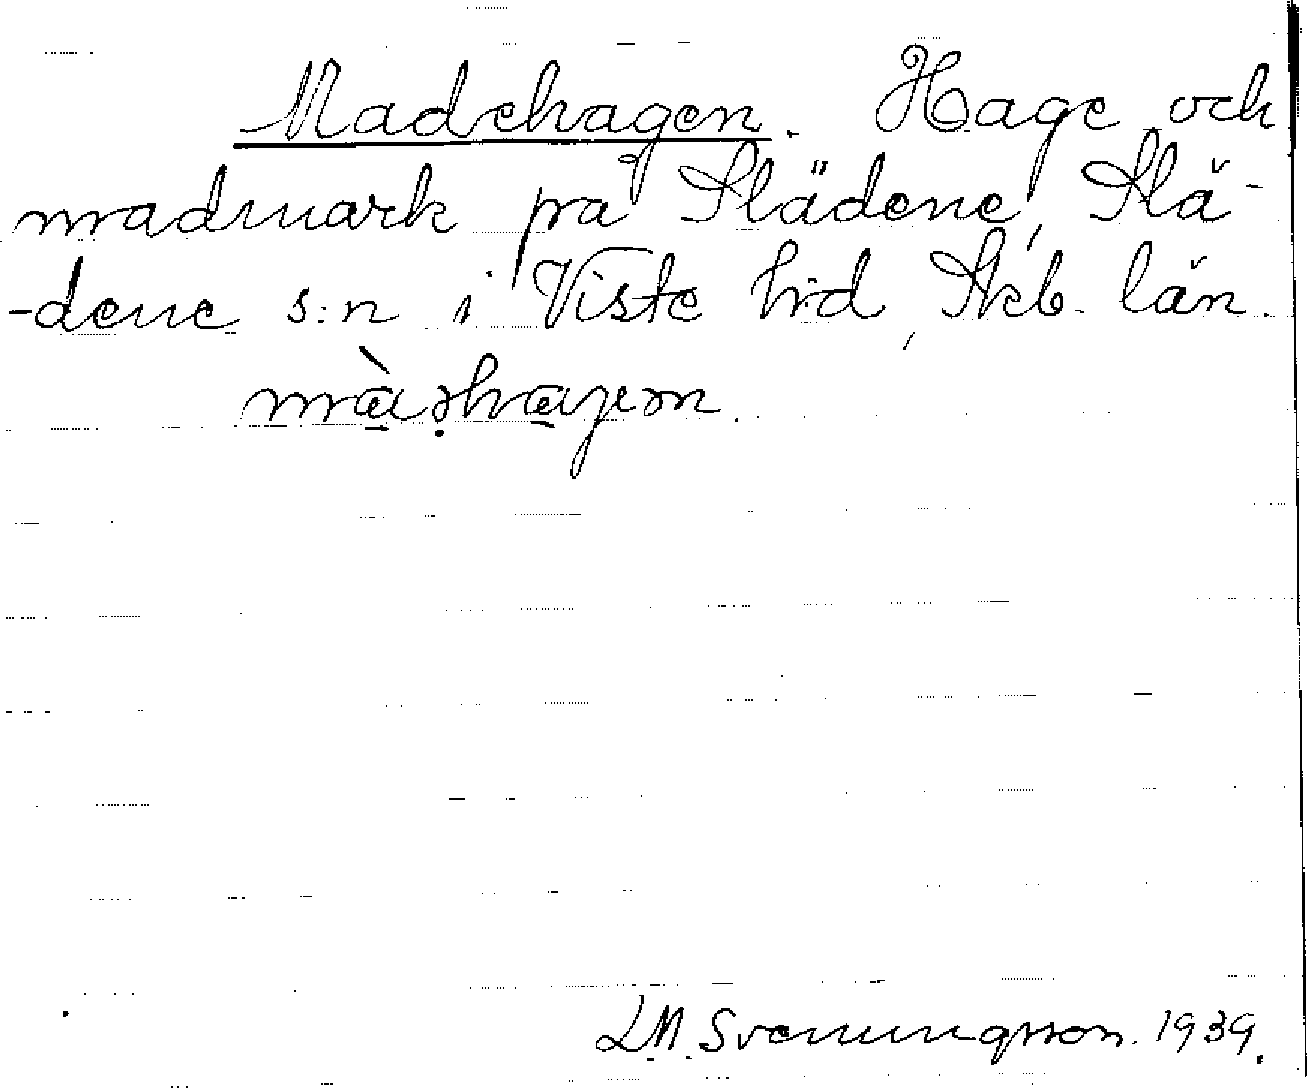 Madehagen. Hage och
madmark på Slädene, Slä-
-dene s:n i Viste hd, Skb. län.
màəhagen.
L.M. Svenungsson. 1939.